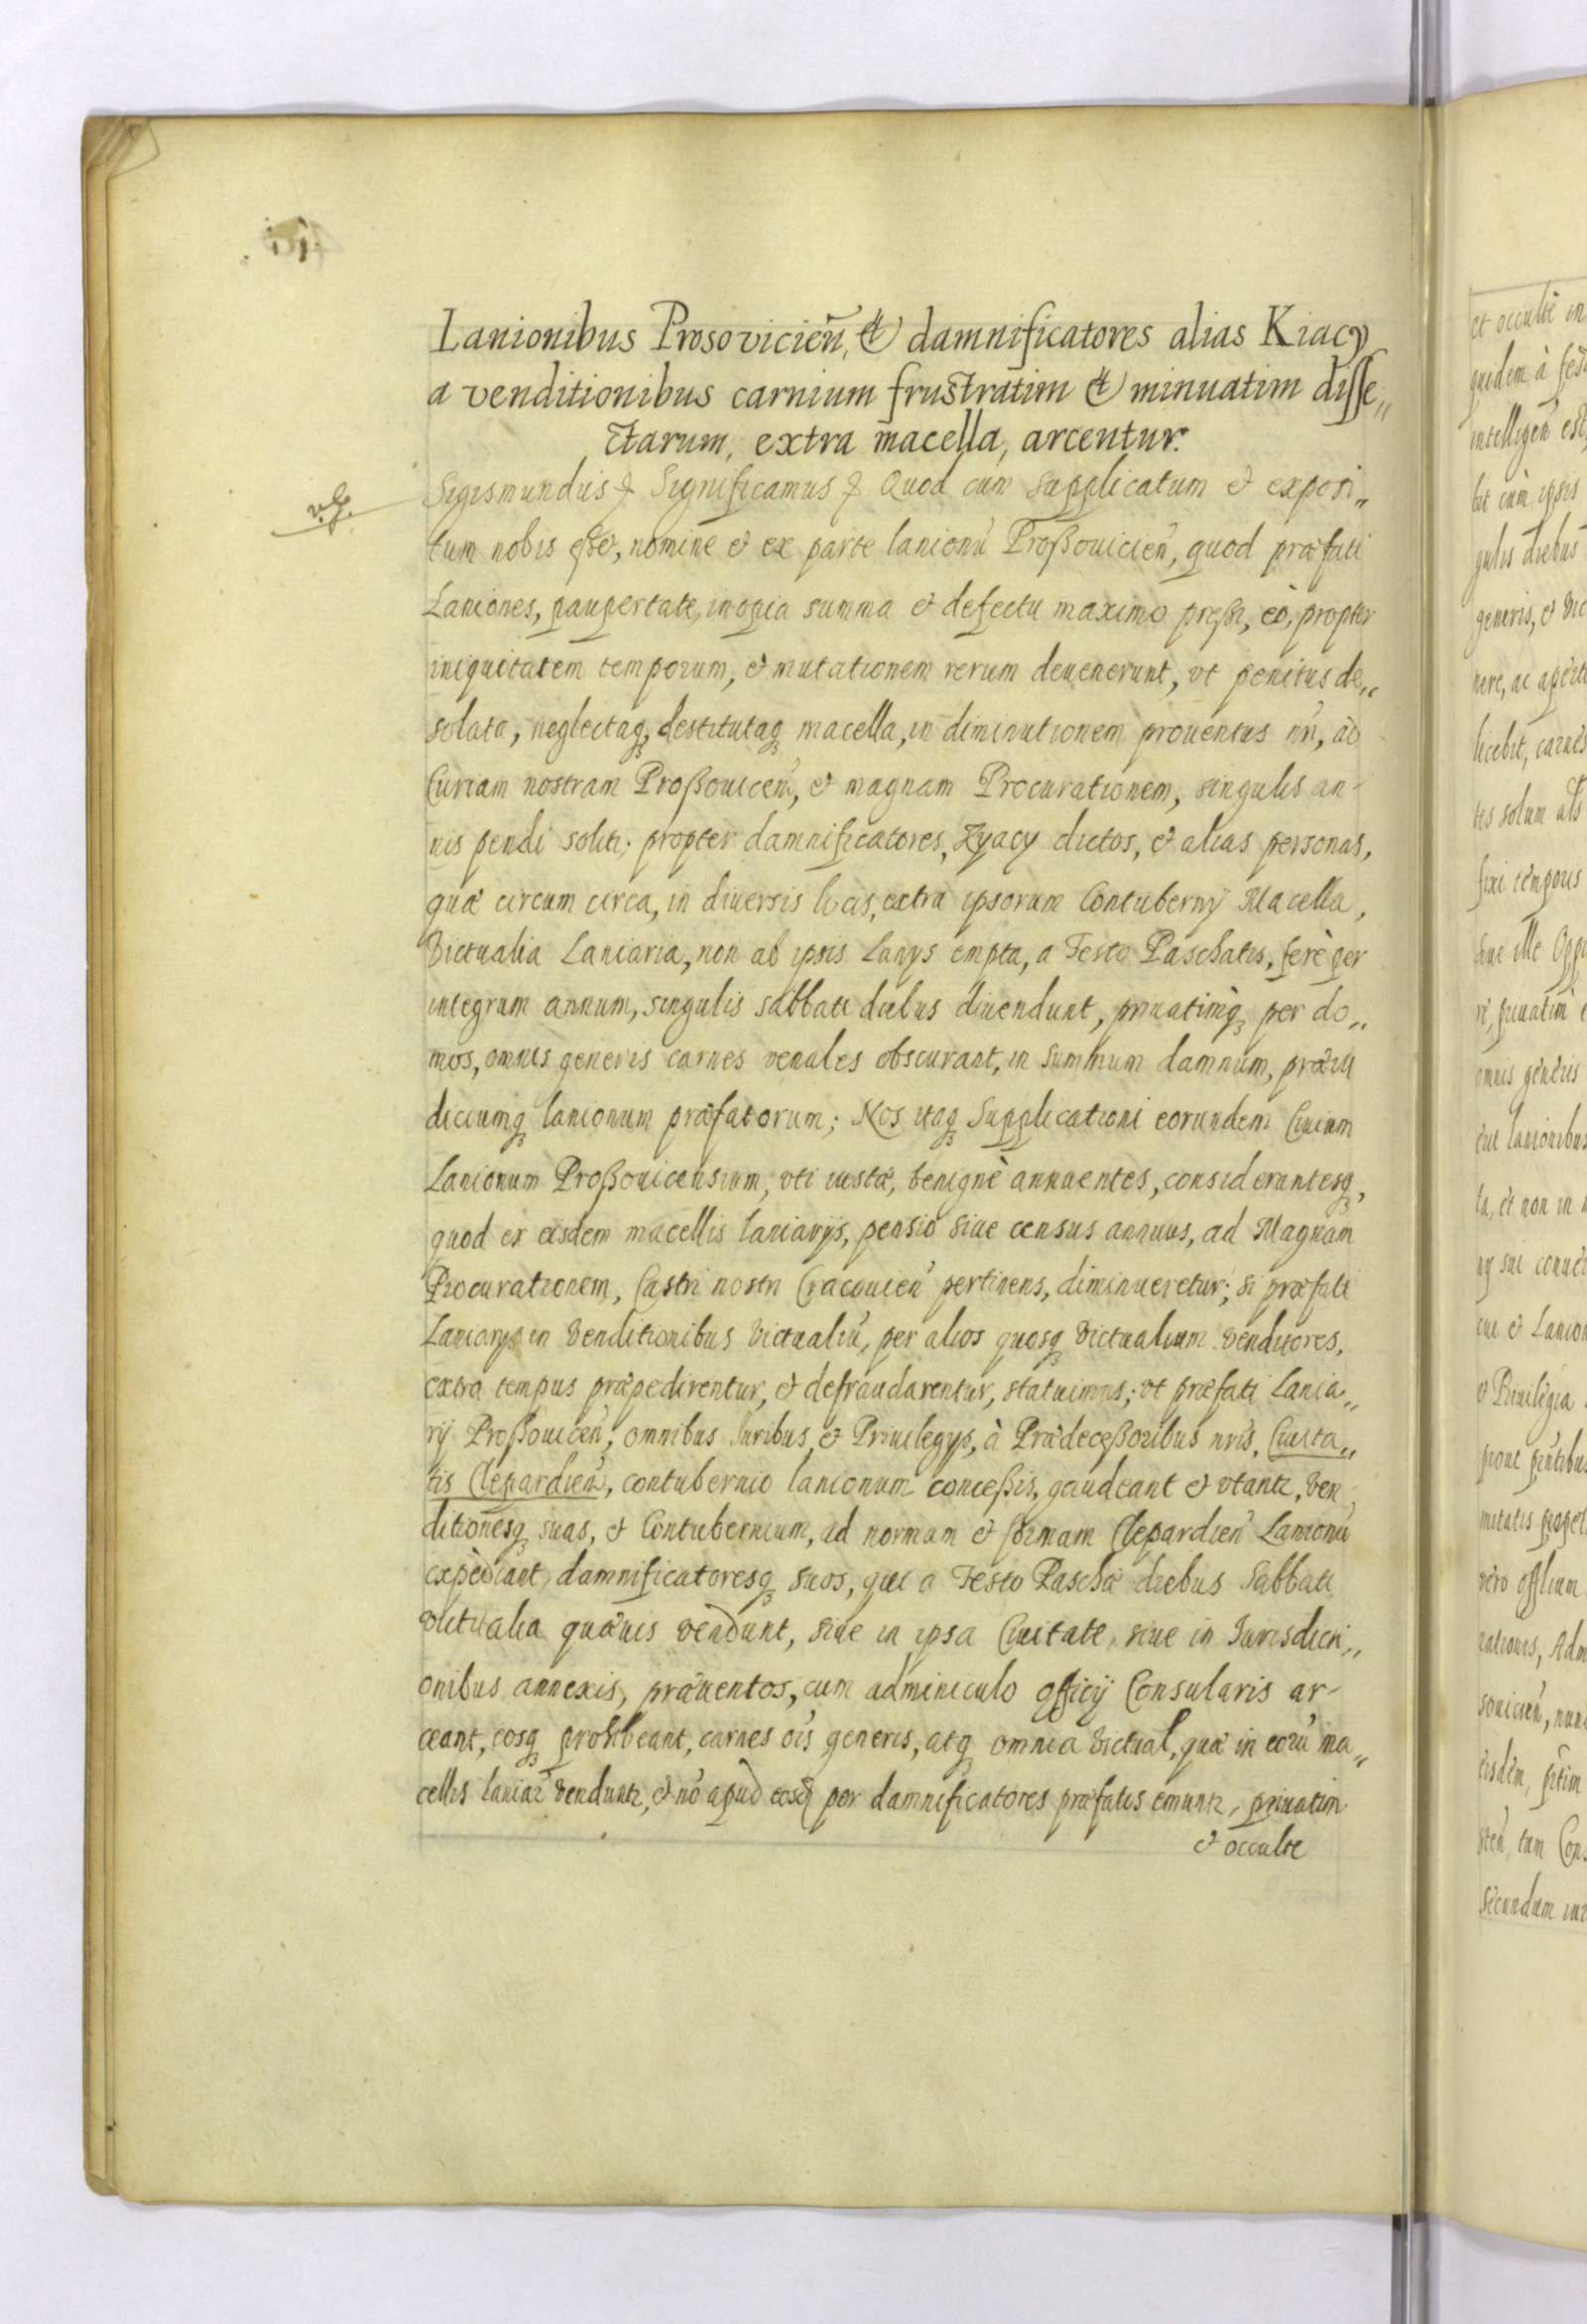 Lanionibus Prosovicien̄, & damnificatores alias Kiacy
a venditionibus carnium frustratim & minuatim disse„
ctarum, extra macella, arcentur.
Sigismundus & Significamus & Quod cum supplicatum & exposi„
tum nobis esset, nomine & ex parte lanionū Proßouicien̄, quod præfati
Laniones, paupertate, inopia summa & defectu maximo preßi, eò, propter
iniquitatem temporum, & mutationem rerum deuenerunt, vt penitus de„
solata, neglectaq, destitutaq macella, in diminutionem prouentus nri, ad
Curiam nostram Proßouicen̄, & magnam Procurationem, singulis an-
nis pendi soliti; propter damnificatores, Kyacy dictos, & alias personas,
quæ circum circa, in diuersis locis, extra ipsorum Contubernij Macella,
Victualia Laniaria, non ab ipsis Lanijs empta, a Festo Paschatis, ferè per
integrum annum, singulis sabbati diebus diuendunt, priuatimq per do„
mos, omnis generis carnes venales obscurant, in summum damnum, præiu
diciumq lanionum præfatorum; Nos itaq Supplicationi eorundem Ciuium
Lanionum Proßouicensium, vti iustæ, benignè annuentes, considerantesq,
quod ex eisdem macellis laniarijs, pensio siue census annuus, ad Magnam
Procurationem, Castri nostri Cracouien̄ pertinens, diminueretur; si præfati
Laniarij in venditionibus victualiū, per alios quosq victualium venditores,
extra tempus præpedirentur, & defraudarentur, statuimus; vt præfati Lania„
rij Proßouicen̄, omnibus Iuribus & Priuilegijs, à Prædeceßoribus nris, Ciuita„
tis Clepardien̄, contubernio lanionum conceßis, gaudeant & vtantr, ven
ditionesq suas, & Contubernium, ad normam & formam Clepardien̄ Lanionū
expediant, damnificatoresq suos, qui a Festo Paschæ diebus Sabbati
victualia quæuis vendunt, siue in ipsa Ciuitate, siue in Iurisdicti„
onibus annexis, præuentos, cum adminiculo officij Consularis ar-
ceant, eosq prohibeant, carnes oīs generis, atq omnia victual, quæ in eorū ma„
cellis laniar̄ venduntr, & nō apud eosd per damnificatores præfatis emuntr, priuatim
& occulte